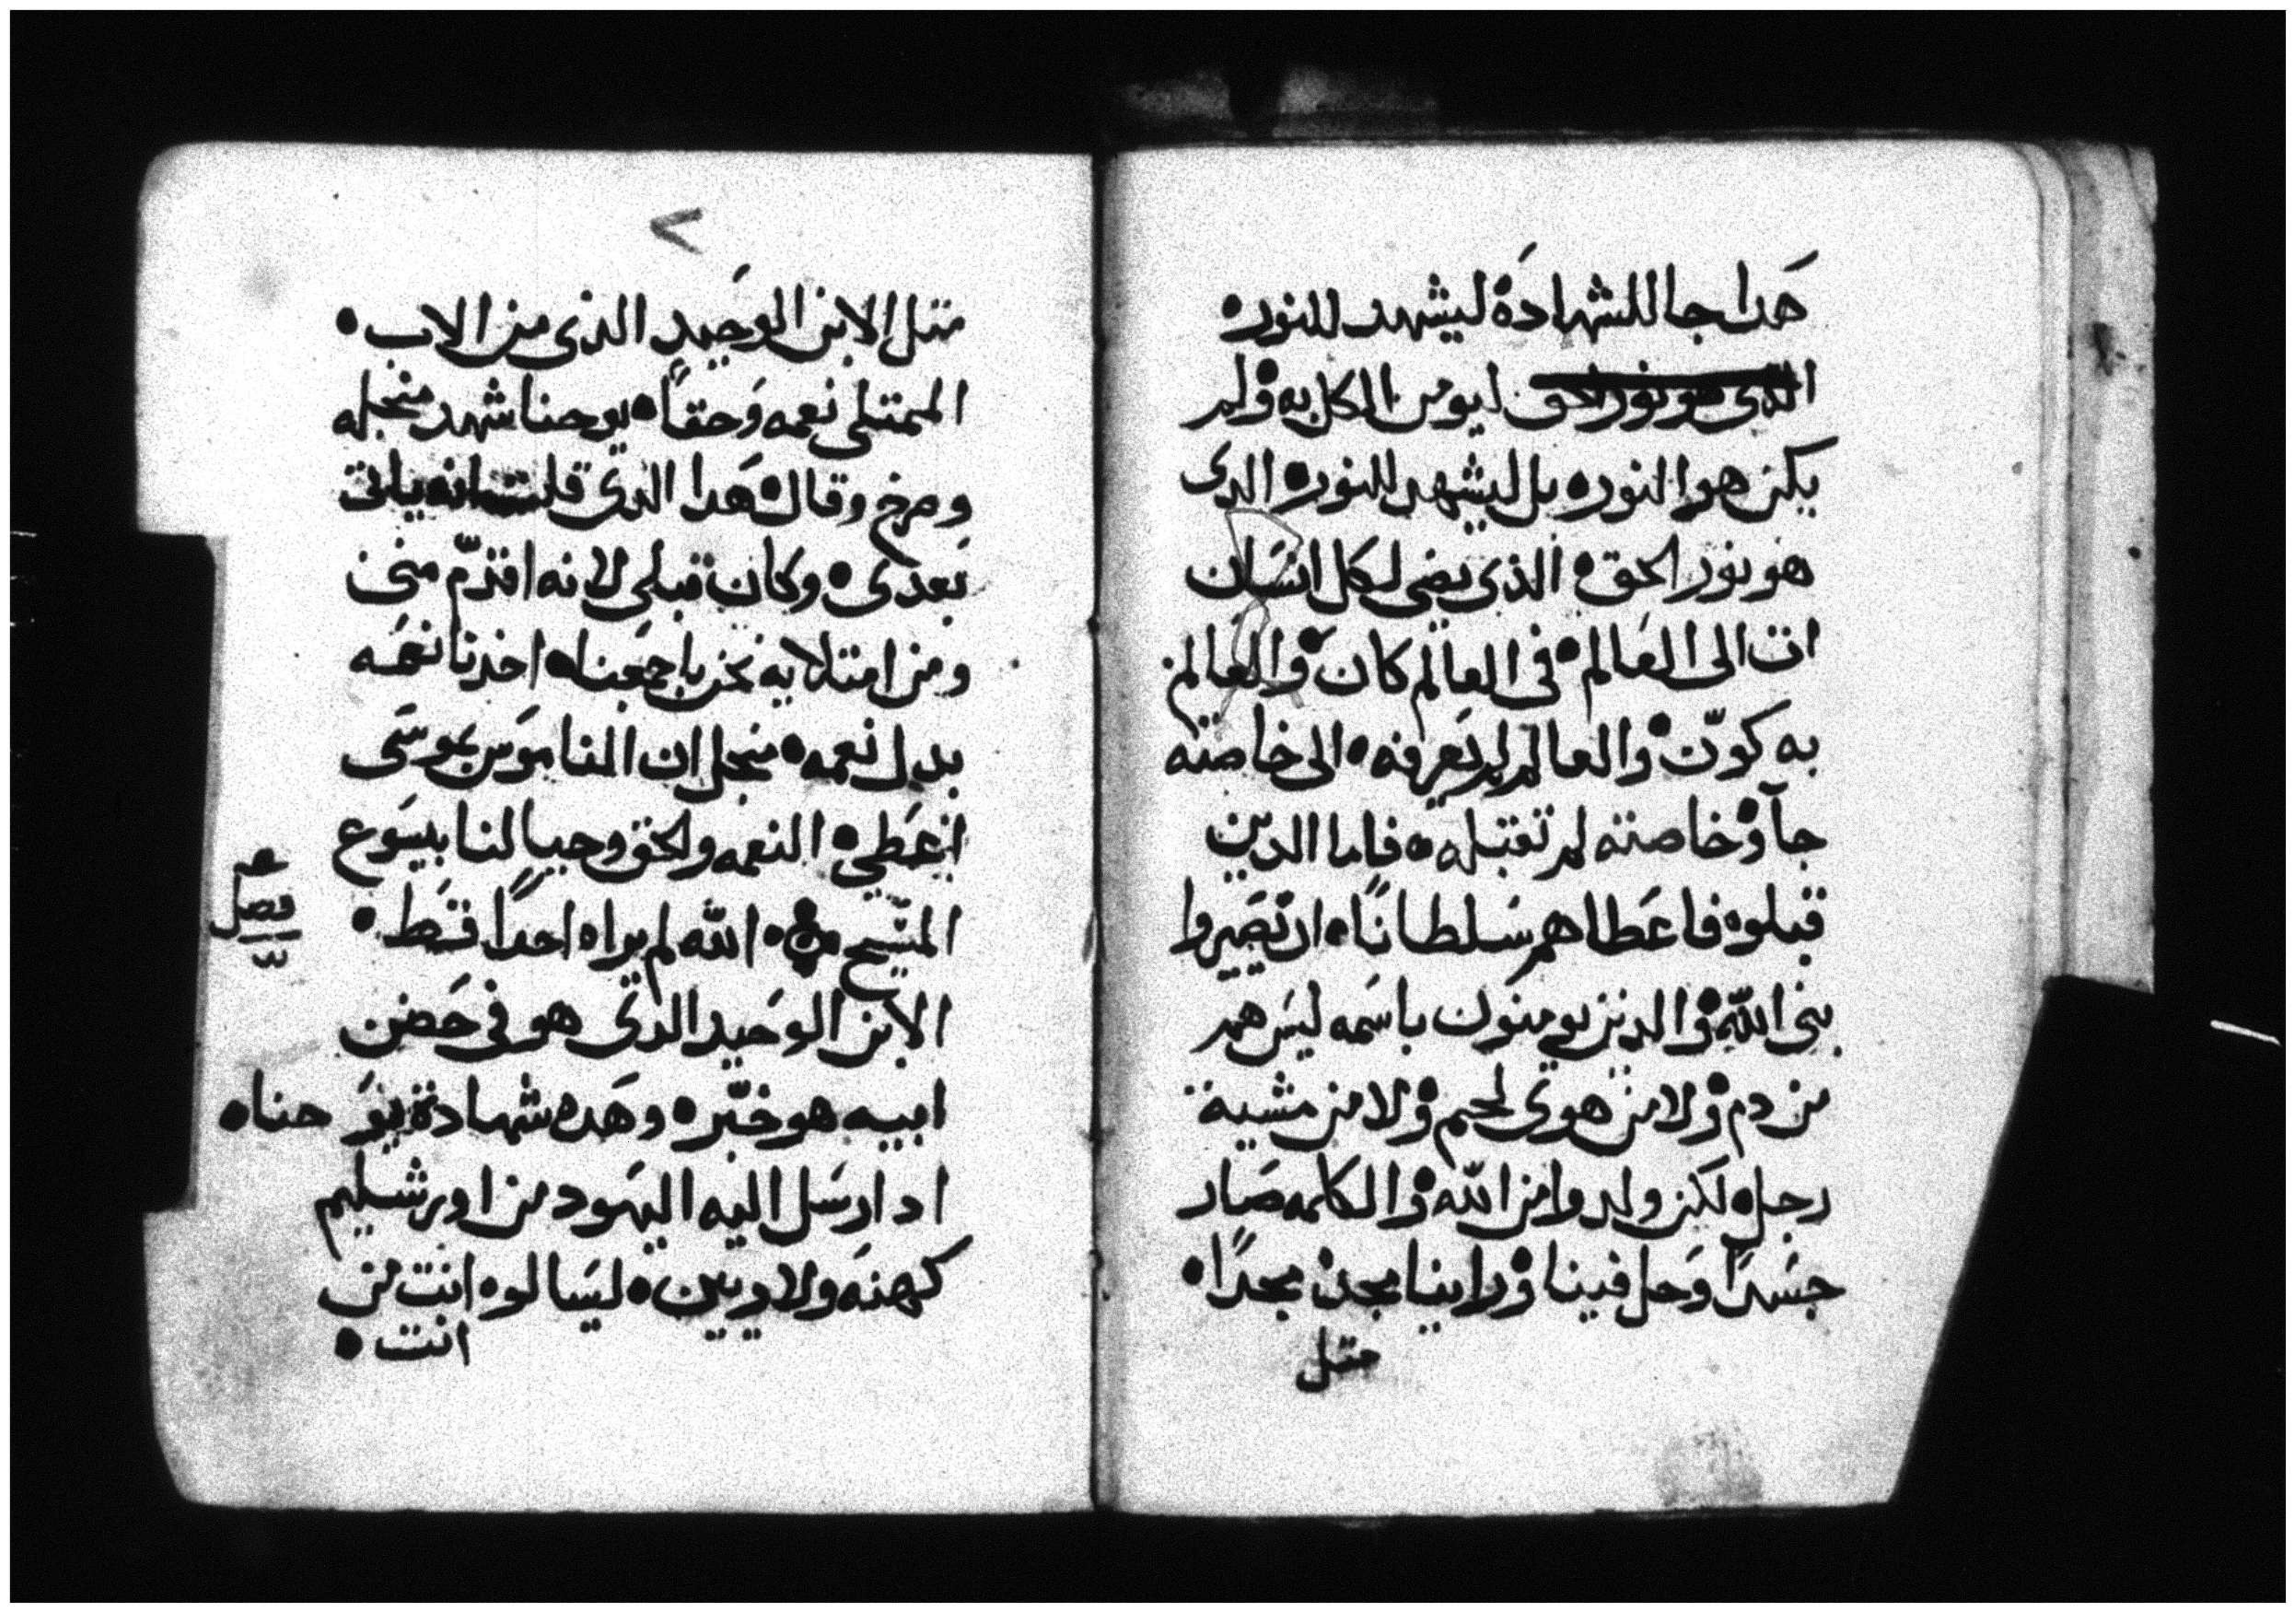 هَدا جا للشهادَة ليشهد للنور ه
الذي هو نور الحق ليومن الكل به ه ولم
يكن هو النور ه بل ليشهد للنور ه الدى
هو نور الحق ه الذي يضى لكل انسَان
ات الى العَالم ه فى العالم كان ه والعَالم
به كوّن ه والعالم لم يَعرفه ه الى خاصته
جآ ه وخاصته لم تقبله ه فاما الدين
قبلوه فاعَطاهم سَلطانًا ه ان يَصَيروا
بنى الله ه والدين يومنون باسَمه ليسَ هم
من دم ه ولا من هوى لحم ه ولا من مشية
رجل ه لَكن ولدوا من الله ه والكلمه صَار
جسَدًا وَحل فينا ه وراينا مجده مجدًا ه
متل
>
متل الابن الوَحيد الذى من الاب ه
الممتلى نعمه وَحقًا ه يوحنا شهد منجله
وصرخ وقال ه هَدا الدى قلت انه ياتى
بَعدى ه وكان قبلى لانه اقدمّ منى
ومن امتلايه نحن باجمَعنا ه اخدنا نعمَه
بدل نعمه ه منجل ان الناموَس بموسَى
اعَطى ه النعمه والحق وجبا لنا بيسَوع
المسَيح ه الله لم يراه احدًا قط ه
فصل
الابن الوَحيد الدَى هو فى حَضن
ابيه هو خبّر ه وهَده شهادة يوَحنا ه
اد ارسَل اليه اليَهود من اورشليم
كهنه ولاويين ه ليسَالوه انت من
انت ه